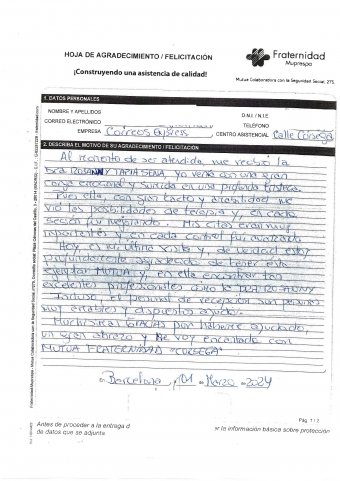 HOJA DE AGRADECIMIENTO / FELICITACIÓN
¡Construyendo una asistencia de calidad!
Fraternidad
Muprespa
Mutua Colaboradora con la Seguridad Social, 275
1. DATOS PERSONALES
NOMBRE Y APELLIDOS
D.N.I. / N.I.E.
CORREO ELECTRÓNICO
TELÉFONO
EMPRESA Correos Express
CENTRO ASISTENCIAL Calle Córsega
2. DESCRIBA EL MOTIVO DE SU AGRADECIMIENTO / FELICITACIÓN
Al momento de ser atendida, me recibió la
Dra. TAPIA SENA, yo venía con una gran
carga emocional y sumida en una profunda tristeza.
Pues ella, con gran tacto y amabilidad me
vio las posibilidades de terapia y, en cada
sesión fui mejorando. Mis citas eran muy
importantes y en cada control fui avanzando
Hoy, es mi última visita y, de verdad, estoy
profundamente agradecida de tener esta
ejemplar MUTUA y, en ella encontrar tan
excelentes profesionales como la DRA.
el personal de recepción son personas
muy amables y dispuestos ayudar.
Muchísimas Gracias por haberme ayudado,
un gran abrazo y me voy encantada con
MUTUA FRATERNIDAD "CORSEGA"
En Barcelona, 01 Marzo 2024
Pág. 1 / 2
Antes de proceder a la entrega d
ar la información básica sobre protección
de datos que se adjunta